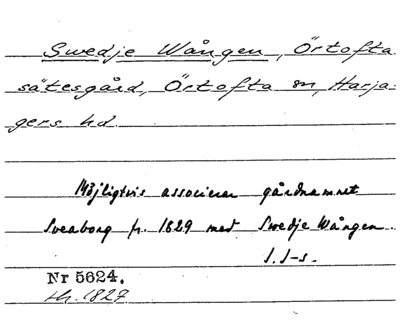 Swedje Wången, Örtofta
sätesgård, Örtofta sn, Harja-
gers hd.
Möjligtvis associerar gårdnamnet
Sveaborg fr. 1829 med Swedje Wången.
S. J-s.
Nr 5624.
1827